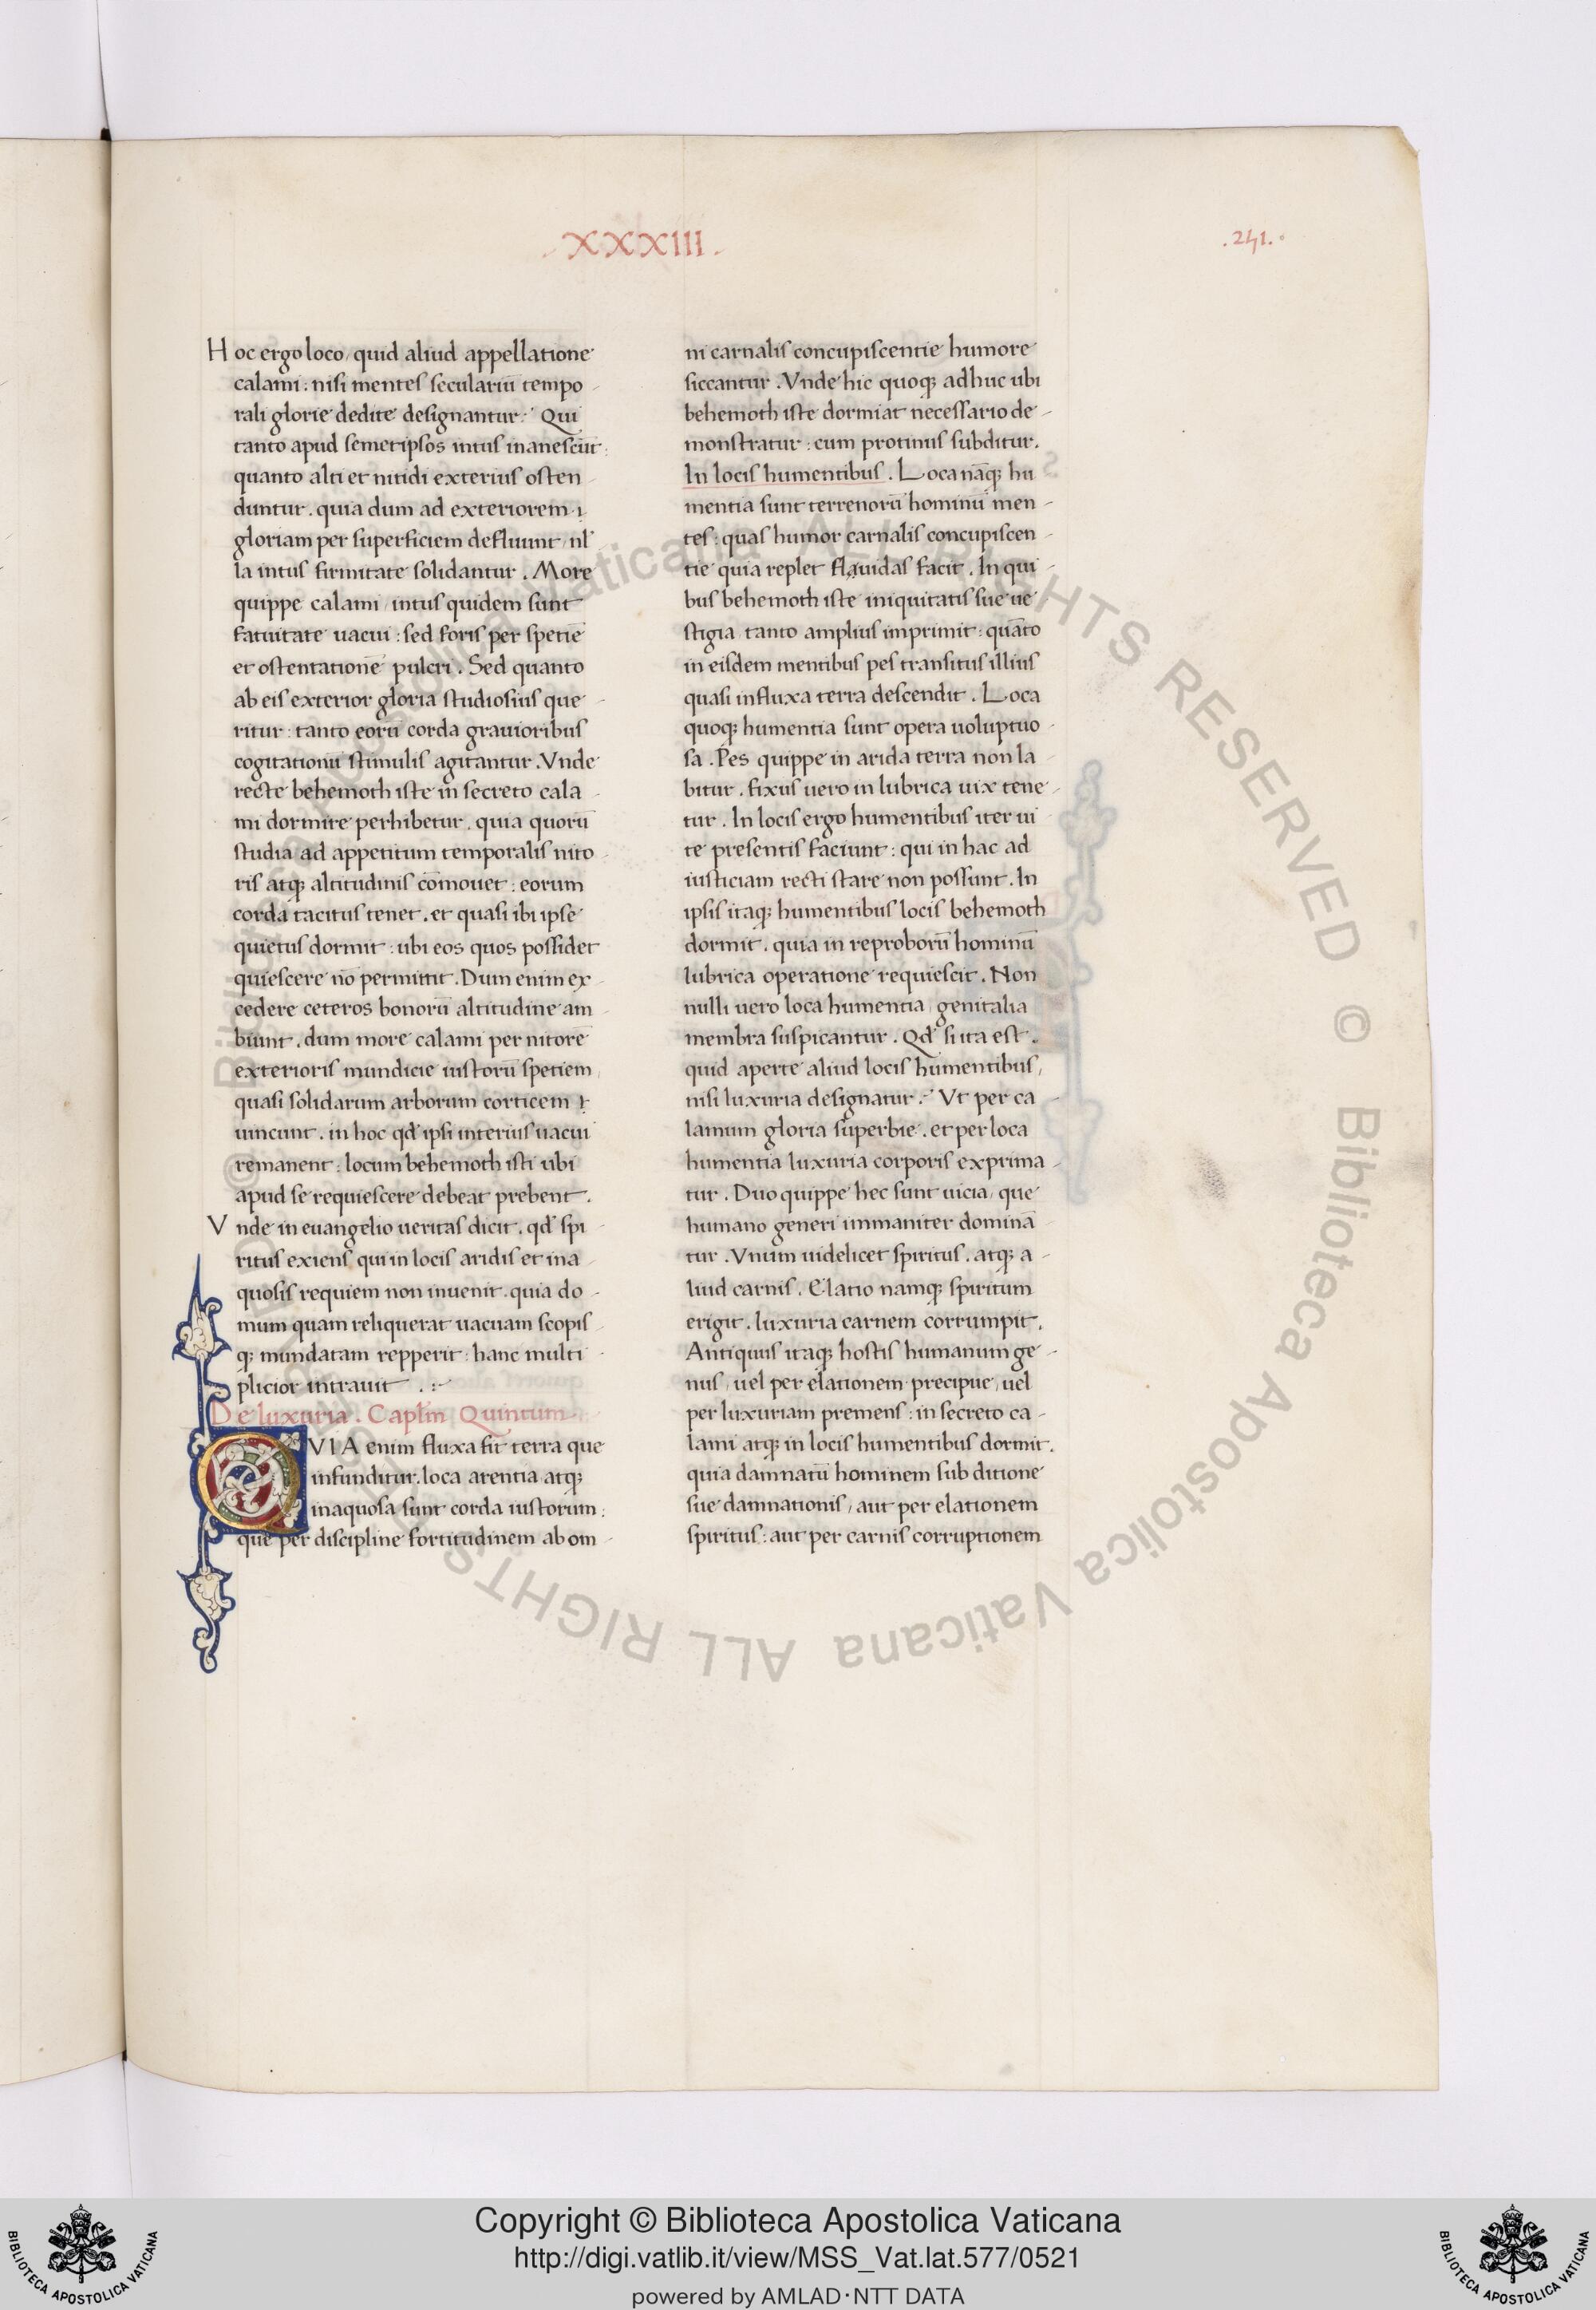 .XXXIII.
.241.
Hoc ergo loco, quid aliud appellatione
calami: nisi mentes seculariū tempo-
rali glorie dedite designantur? Qui
tanto apud semetipsos intus inanescūt:
quanto alti et nitidi exterius osten-
duntur. quia dum ad exteriorem
gloriam per superficiem defluunt, nl̄-
la intus firmitate solidantur. More
quippe calami, intus quidem sunt
fatuitate uacui: sed foris per spetiē
et ostentationē pulcri. Sed quanto
ab eis exterior gloria studiosius que-
ritur: tanto eorū corda grauioribus
cogitationū stimulis agitantur. Vnde
recte behemoth iste in secreto cala-
mi dormire perhibetur. quia quorū
studia ad appetitum temporalis nito-
ris atq; altitudinis cōmouet: eorum
corda tacitus tenet. et quasi ibi ipse
quietus dormit: ubi eos quos possidet
quiescere nō permittit. Dum enim ex-
cedere ceteros bonorū altitudine am-
biunt. dum more calami per nitorē
exterioris mundicie iustorū spetiem,
quasi solidarum arborum corticem
uincunt. in hoc qd̄ ipsi interius uacui
remanent: locum behemoth isti ubi
apud se requiescere debeat prebent.
Vnde in euangelio ueritas dicit. qd̄ spi-
ritus exiens qui in locis aridis et ina-
quosis requiem non inuenit. quia do-
mum quam reliquerat uacuam scopis-
q; mundatam repperit: hanc multi-
plicior intrauit .:~
De luxuria. Capl̄m Quintum.
QVIA enim fluxa fit terra que
infunditur. loca arentia atq;
inaquosa sunt corda iustorum:
que per discipline fortitudinem ab om-
ni carnalis concupiscentie humore
siccantur. Vnde hic quoq; adhuc ubi
behemoth iste dormiat necessario de-
monstratur: cum protinus subditur.
In locis humentibus. Loca nāq; hu
mentia sunt terrenorū hominū men-
tes: quas humor carnalis concupiscen-
tie quia replet flauidas facit. In qui-
bus behemoth iste iniquitatis sue ue-
stigia tanto amplius imprimit: quāto
in eisdem mentibus pes transitus illius
quasi in fluxa terra descendit. Loca
quoq; humentia sunt opera uoluptuo-
sa. Pes quippe in arida terra non la-
bitur. fixus uero in lubrica uix tene-
tur. In locis ergo humentibus iter ui-
te presentis faciunt: qui in hac ad
iusticiam recti stare non possunt. In
ipsis itaq; humentibus locis behemoth
dormit. quia in reproborū hominū
lubrica operatione requiescit. Non
nulli uero loca humentia, genitalia
membra suspicantur. Qd̄ si ita est.
quid aperte aliud locis humentibus,
nisi luxuria designatur? Vt per ca-
lamum gloria superbie. et per loca
humentia luxuria corporis exprima-
tur. Duo quippe hec sunt uicia, que
humano generi immaniter dominā-
tur. Vnum uidelicet spiritus. atq; a-
liud carnis. Elatio namq; spiritum
erigit. luxuria carnem corrumpit.
Antiquus itaq; hostis humanum ge-
nus, uel per elationem precipue, uel
per luxuriam premens: in secreto ca-
lami atq; in locis humentibus dormit.
quia damnatū hominem sub ditione
sue damnationis, aut per elationem
spiritus: aut per carnis corruptionem
© Biblioteca Apostolica Vaticana ALL RIGHTS RESERVED © Biblioteca Apostolica Vaticana ALL RIGHTS RESERVED
Copyright © Biblioteca Apostolica Vaticana
http://digi.vatlib.it/view/MSS_Vat.lat.577/0521
powered by AMLAD·NTT DATA
BIBLIOTECA APOSTOLICA VATICANA
BIBLIOTECA APOSTOLICA VATICANA